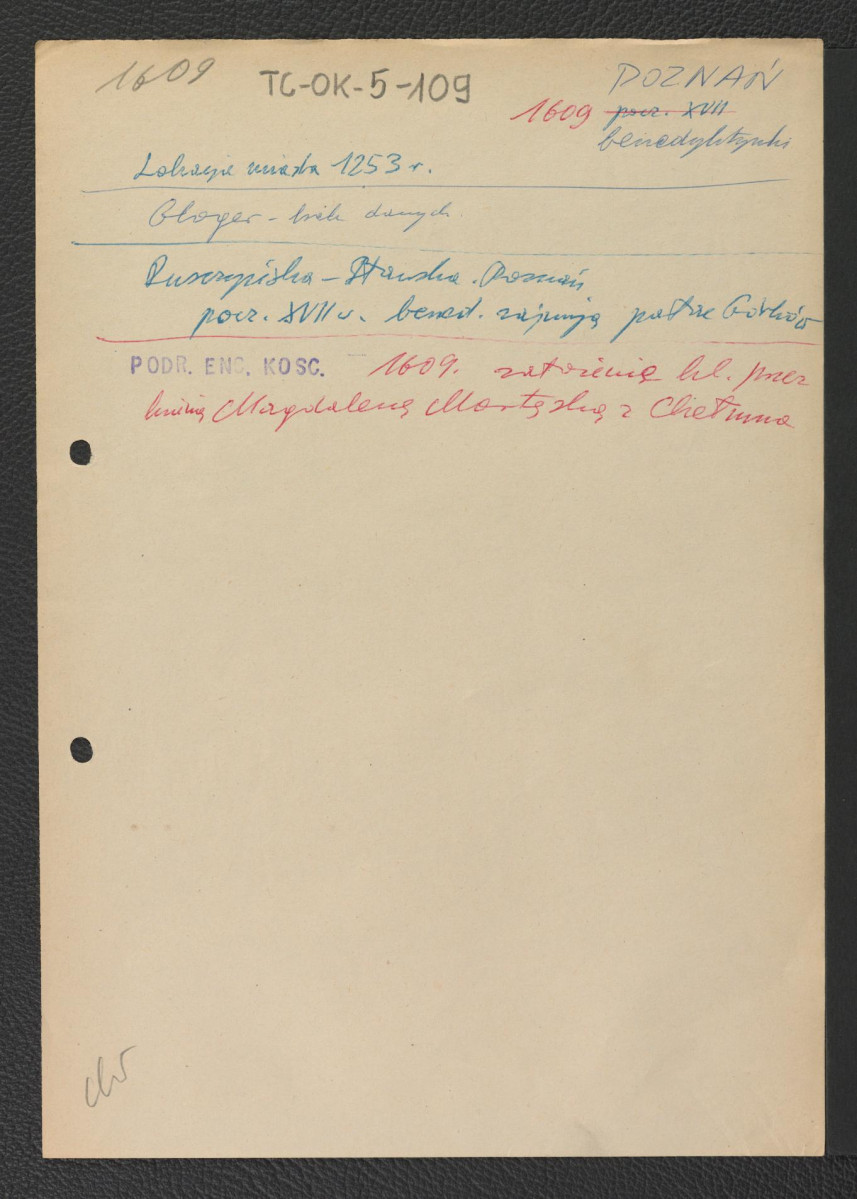 1609
TC-OK-5-109
POZNAŃ
1609 pocz. XVII
benedyktynki
Lokacja miasta 1253 r.
Gloger - brak danych.
Ruszczyńska - Sławska. Poznań
pocz. XVII w. bened. zajmują pałac Górków
PODR. ENC. KOSC. - 1609. założenie kl. przez
ksienię Magdalenę Mortęską z Chełmna